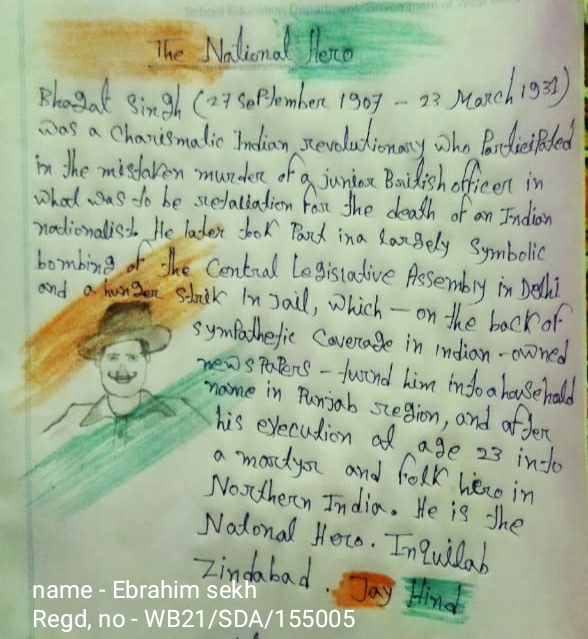 School Education Department, Government of West
The National Hero
Bhagat Singh (27 September 1907 - 23 March 1931)
was a Charismatic Indian revolutionary who Participated
in the mistaken murder of a junior British officer in
what was to be retaliation for the death of an Indian
nationalist. He later took Part in a largely Symbolic
bombing of the Central Legislative Assembly in Delhi
and a hunger Strik In Jail, which - on the back of
sympathetic Coverage in Indian - owned
news Papers - turnd him into a household
name in Punjab region, and after
his execution at age 23 into
a martyr and folk hero in
Northern India. He is the
Natonal Hero. Inquilab
Zindabad. Jay Hind
name - Ebrahim sekh
Regd, no - WB21/SDA/155005